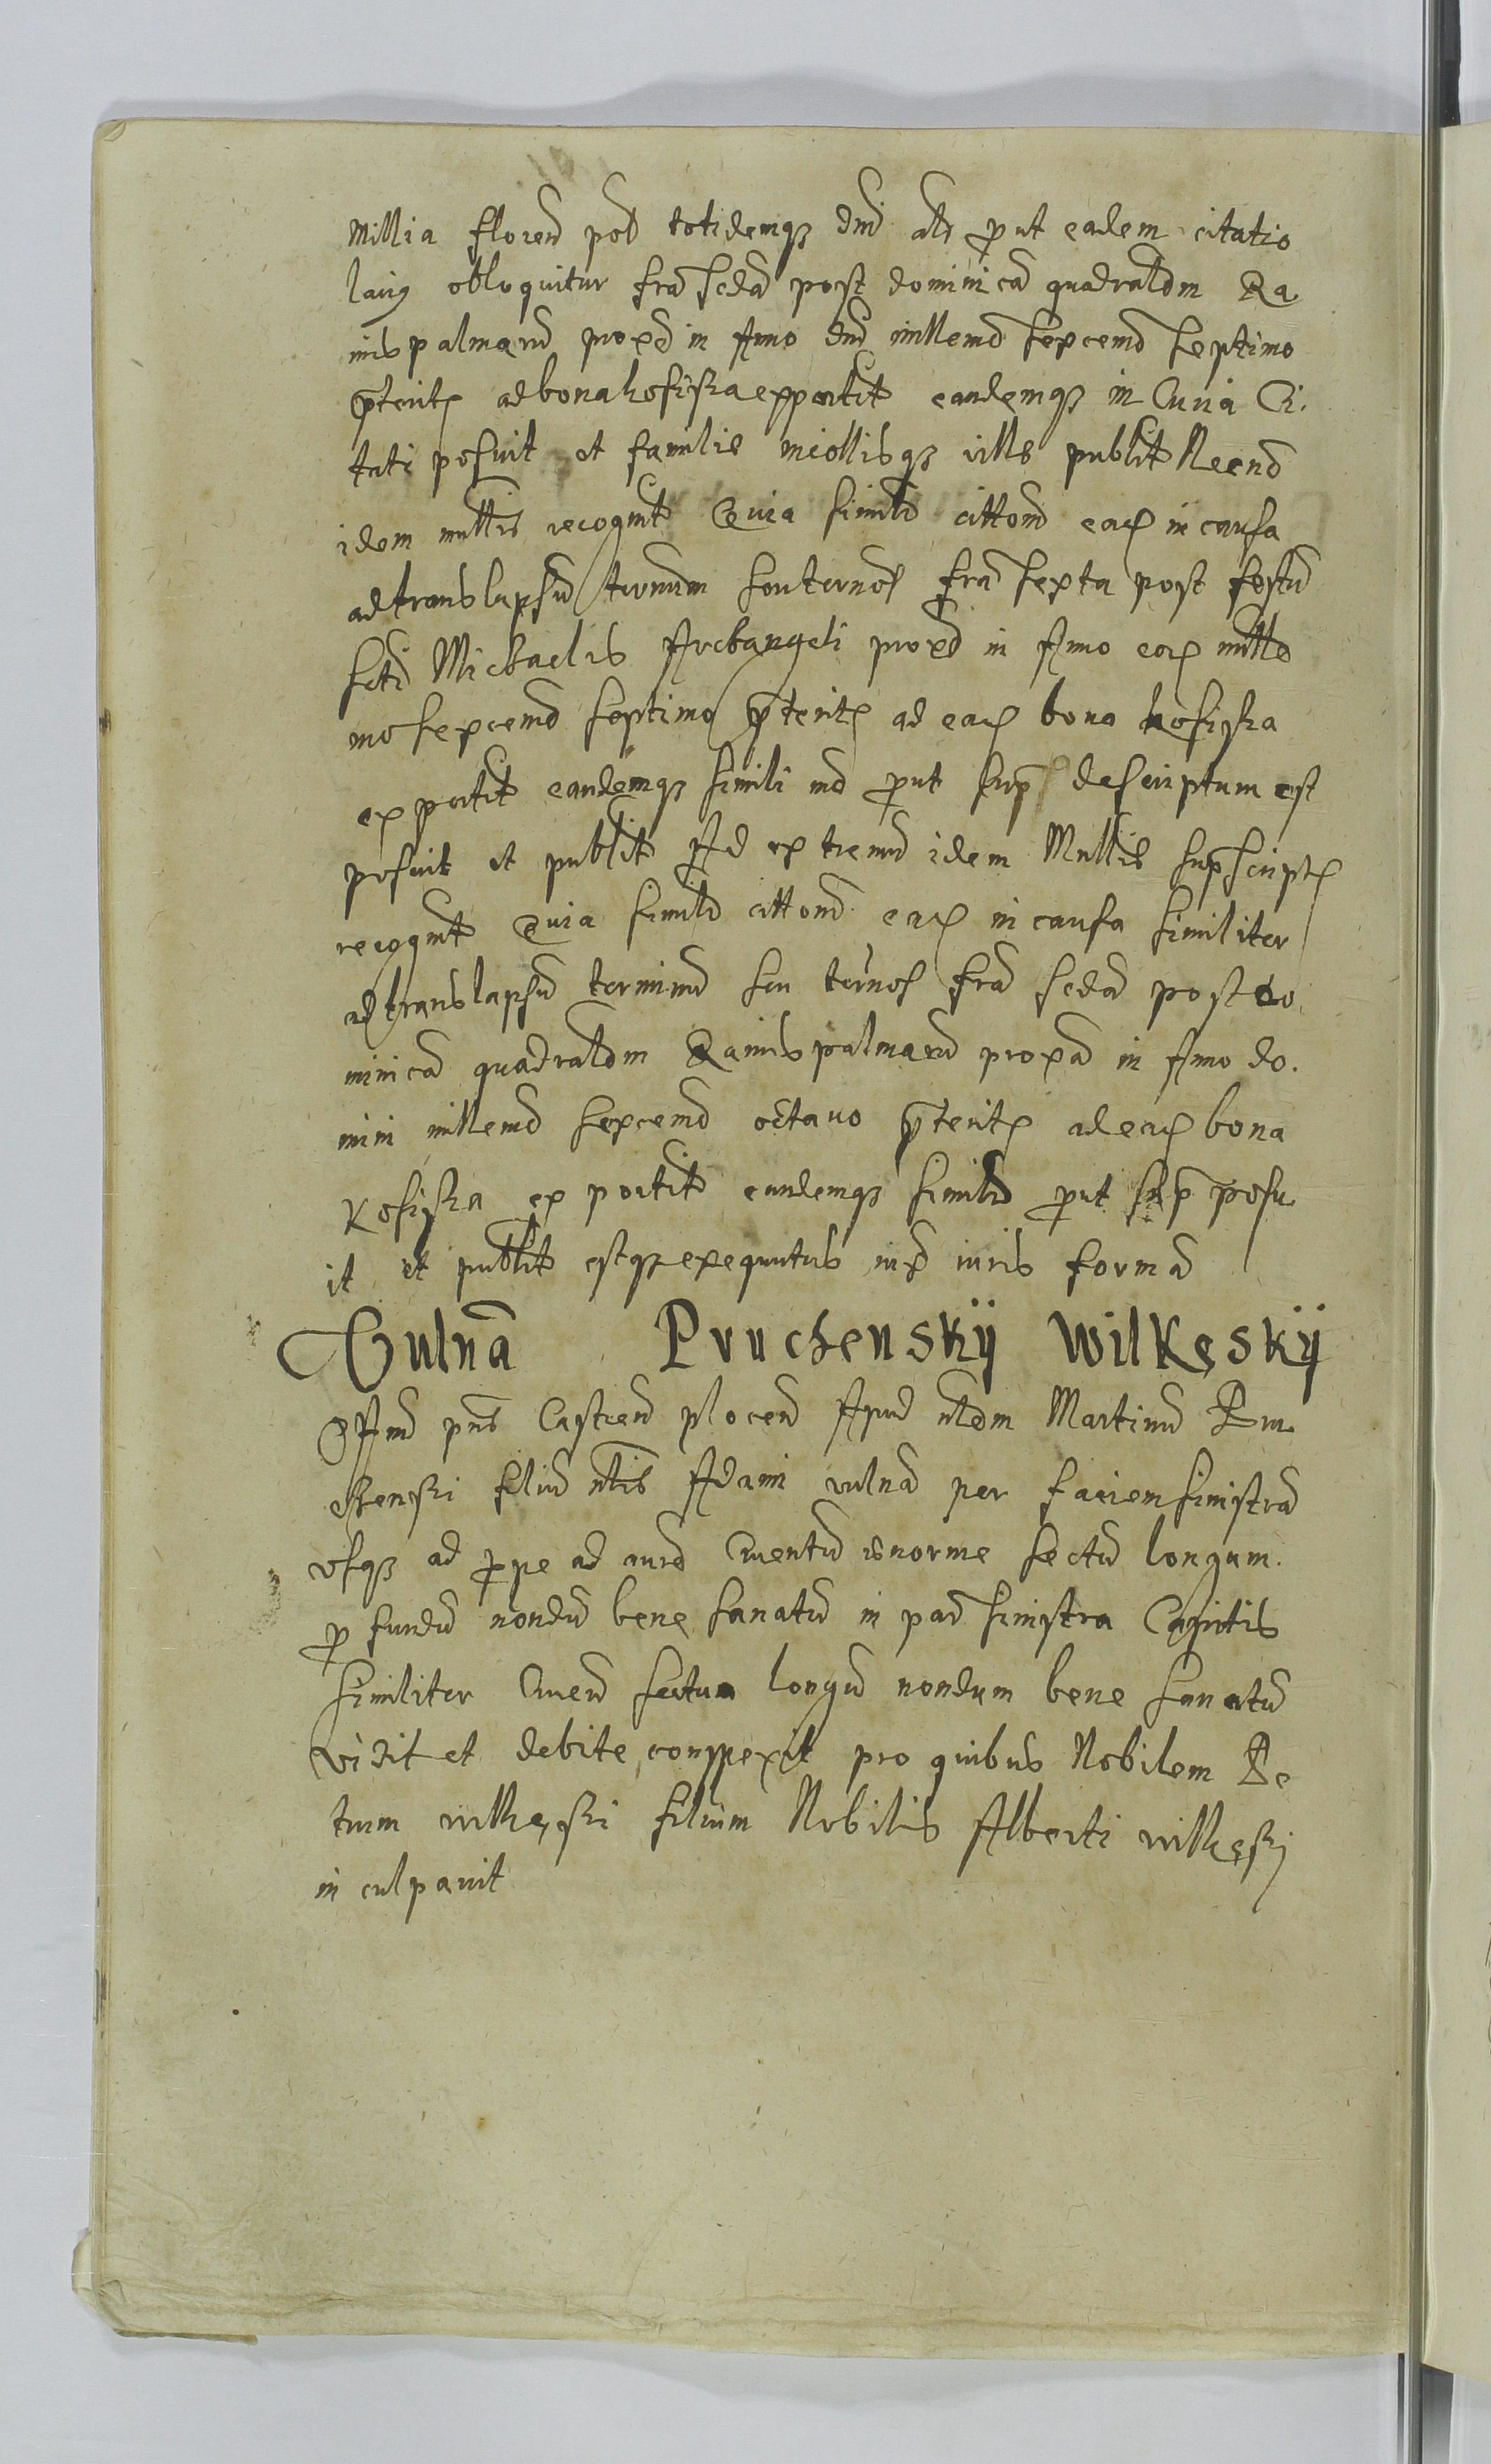 Millia floren pol totidemq3 dni alr prout eadem citatio
latig obloquitur fra scda post dominica quadraldm Ra
mis palmaru proxe in Anno dni millemo sexcemo septimo
pterit ad bona kosiska exportit eandemq3 in Curia Ci.
tati posuit et familie incollisq3 ville publit Necno
idem mttris recognit Quia simile cittone ear in causa
ad translapsu termum seu ternos fra sexta post festu
scti Michaelis Archangeli proxe in Anno eor mille
mo sexcemo septimo pterit ad ear bona kosiska
exportit eandemq3 simili mo prout sup descriptum est
posuit et publit Ad extremu idem Mttris supscript
recognit Quia simile cittone ear in causa similiter
ad translapsu terminu seu ternos fra scda post do.
minica quadraldm Ramis palmaru proxa in Anno do.
mini millemo sexcemo octauo pterit ad ear bona
Kosiska exportit eandemq3 simile prout sup posu
it et publit estq3 exequutus iux iuris forma
Vulna Pruchenskÿ Wilkęskÿ
Offm pns Castren plocen Apud nldm Martinu Pru
chenski filiu nlis Adami vulna per faciem sinistra
vsq3 ad prope ad aure Cruentu enorme sectu longum.
profundu nondu bene sanatu in par sinistra Capitis
similiter Cruen sectum longu nondum bene sanatu
vidit et debite conspexit pro quibus Nobilem Pe
trum wilkęski filium Nobilis Alberti wilkęski
inculpauit